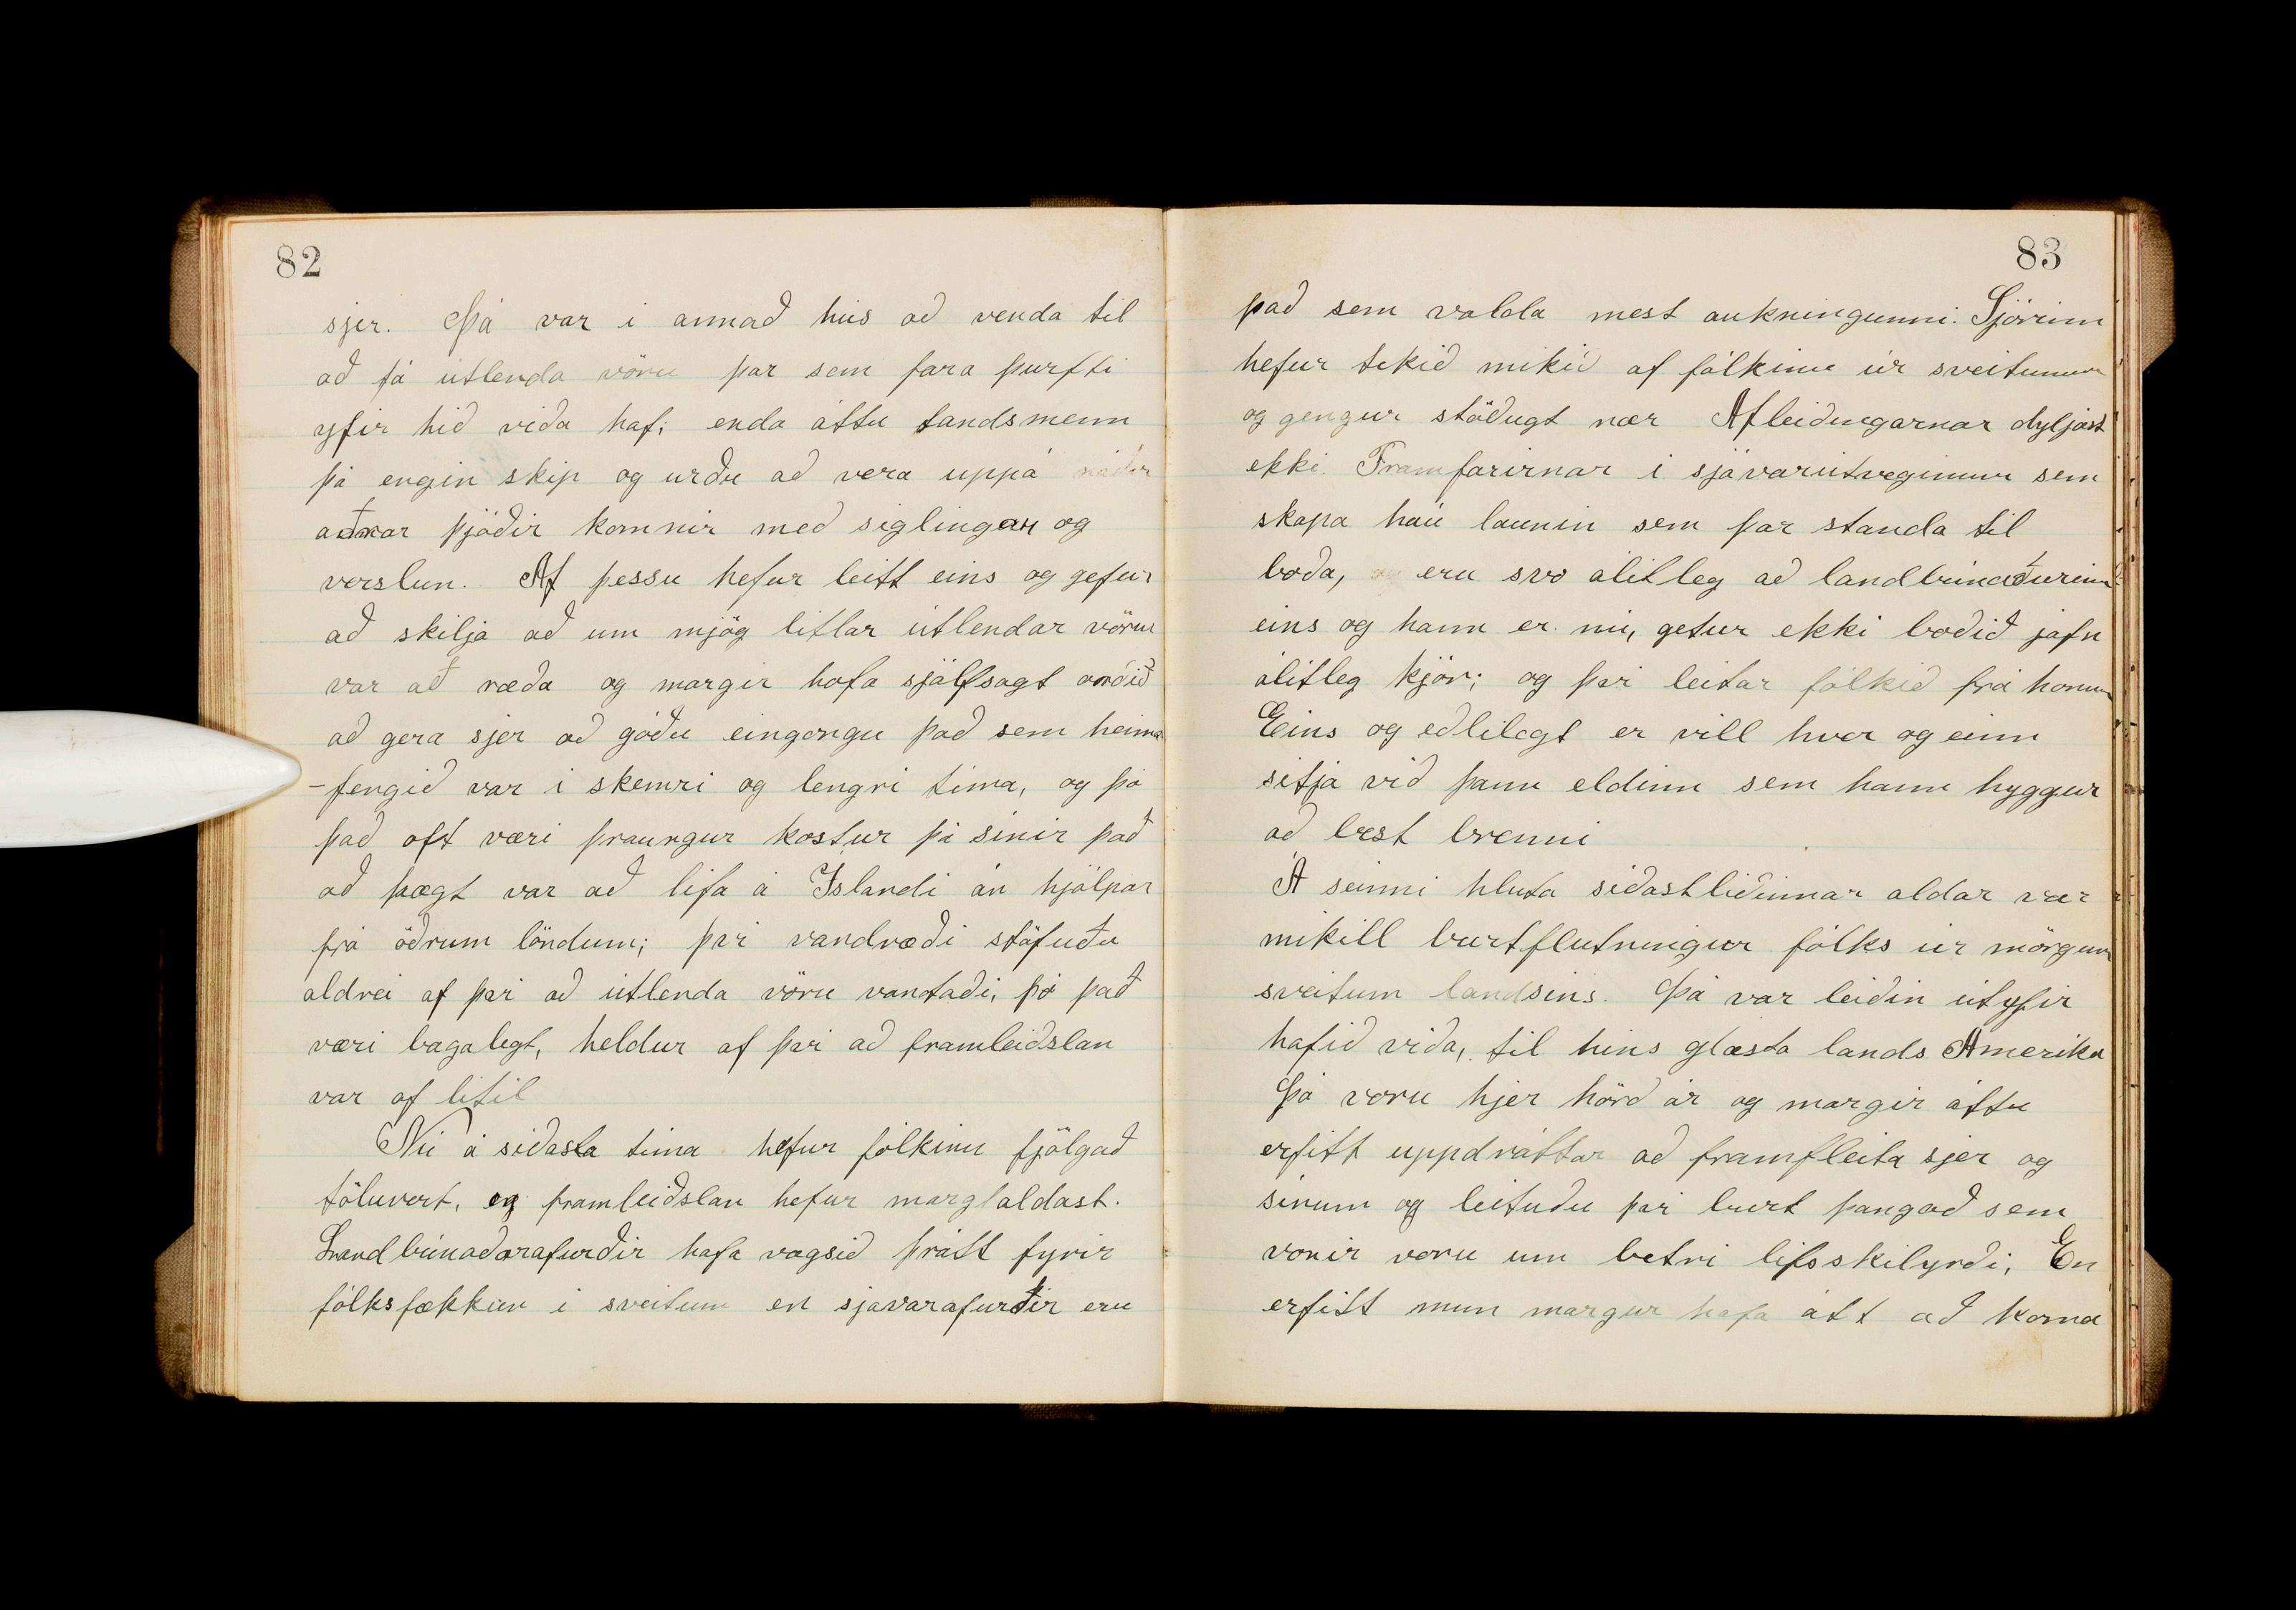 82
sjer. Þá var i annað hús að venda til
að fá útlenda vöru þar sem fara þurfti
yfir hið viða haf; enda áttu landsmenn
þá engin skip og urðu að vera uppá náðir
aðrar þjóðir komnir með siglingar og
verslun. Af þessu hefur leitt eins og gefur
að skilja að um mjög litlar útlendar vörur
var að ræða og margir hafa sjálfsagt orðið
að gera sjer að góðu eingöngu það sem heima
-fengið var i skemri og lengri tima, og þó
það oft væri þraungur kostur þá sínir það
að hægt var að lifa á Íslandi án hjálpar
frá öðrum löndum; því vandræði stöfuðu
aldrei af því að útlenda vöru vantaði, þó það
væri bagalegt, heldur af því að framleiðslan
var of litil
Nú á siðasta tima hefur fólkinu fjölgað
töluvert, og framleiðslan hefur margfaldast.
Landbúnaðarafurðir hafa vagsið þrátt fyrir
fólksfækkun i sveitum en sjavarafurðir eru
83
það sem valda mest aukningunni. Sjórinn
hefur tekið mikið af fólkinu úr sveitunum
og gengur stöðugt nær Afleiðingarnar dyljast
ekki. Framfarirnar i sjávarútveginum sem
skapa háu launin sem þar standa til
boða, eru svo álitleg að landbúnaðurinn
eins og hann er nú, getur ekki boðið jafn
álitleg kjör; og því leitar fólkið frá honum
Eins og eðlilegt er vill hver og einn
sitja við þann eldinn sem hann hyggur
að best brenni
Á seinni hluta siðastliðinnar aldar var
mikill burtflutningur fólks úr mörgum
sveitum landsins. Þá var leiðin útyfir
hafið viða, til hins glæsta lands Ameriku
Þá voru hjer hörð ár og margir áttu
erfitt uppdráttar að framfleita sjer og
sinum og leituðu því burt þangað sem
vonir voru um betri lifsskilyrði, En
erfitt mun margur hafa átt að koma